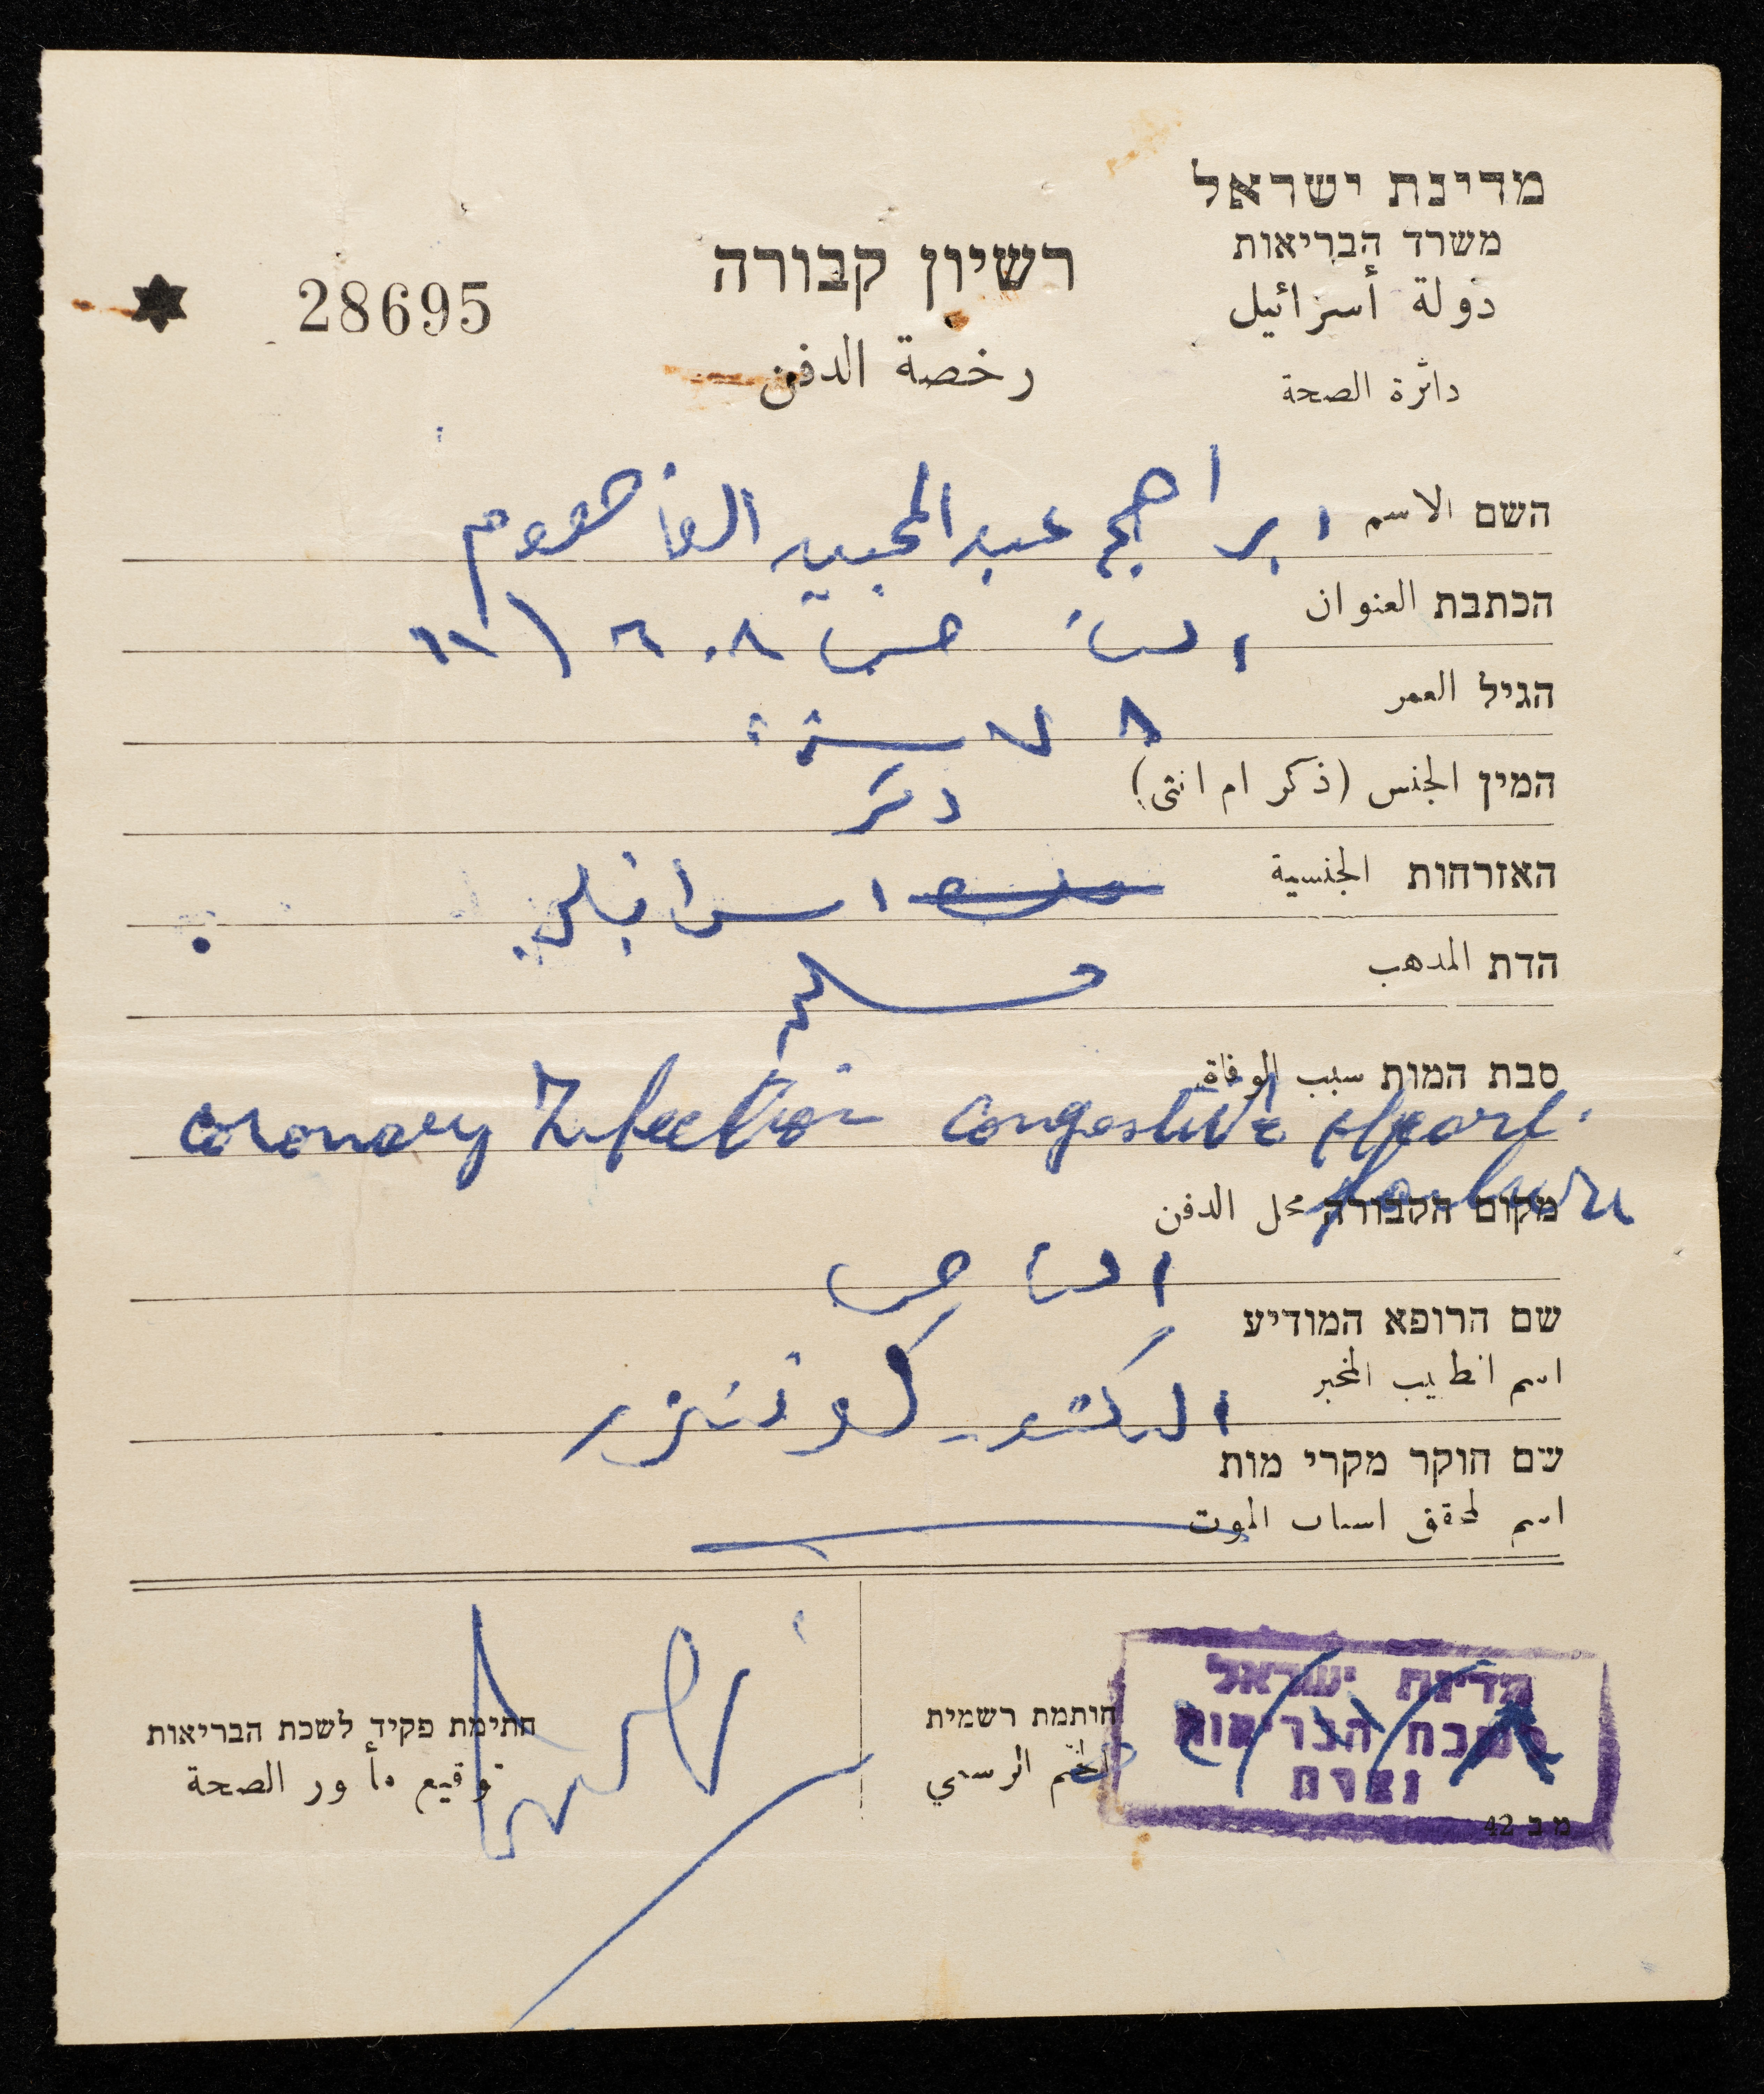 מדינת ישראל
משרד הבריאות
دولة أسرائيل
دائرة الصحة
רשיון קבורה
رخصة الدفن
28695
השם الاسم ابراهيم عبد المجيد الفاهوم
הכתבת العنوان الناصرة ٦٠٨
הגיל العمر ٧٨ سنة
המין الجنس (ذكر ام انثى) ذكر
האזרחות الجنسية اسرائيلي
הדת المدهب مسلم
סבת המות سبب الوفاة
coronary Infection Congestive Heart
Failure
מקום הקבורה محل الدفن
الناصرة
שם הרופא המודיע
اسم الطبيب المخبر
الدكتور
שם חוקר מקרי מות
اسم المحقق اسباب الموت
מדינת ישראל
לשכת הבריאות
נצרת
חותמת רשמית
الختم الرسمي
חתימת פקיד לשכת הבריאות
توقيع مأمور الصحة
מ ב 42